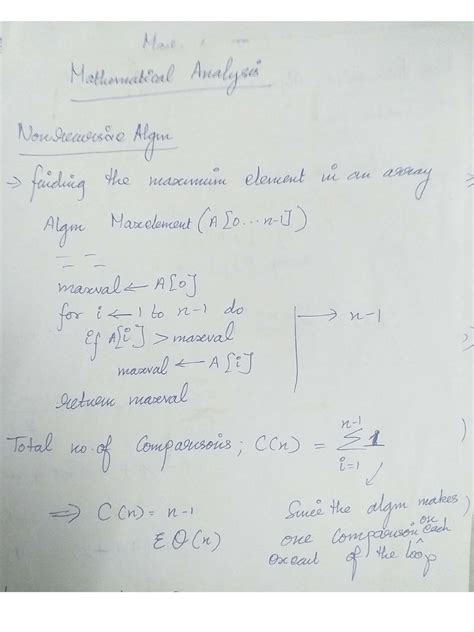 Mathematical Analysis
Nonrecursive Algm
→ finding the maximum element in an array
Algm Maxelement (A[0...n-1])
maxval ← A[0]
for i ← 1 to n-1 do
if A[i] > maxval
maxval ← A[i]
return maxval
→ n-1
Total no. of Comparisons; C(n) = n-1 ∑ i=1 1
⇒ C(n) = n-1
∈ Θ(n)
Since the algm makes
one comparison on each
execut of the loop